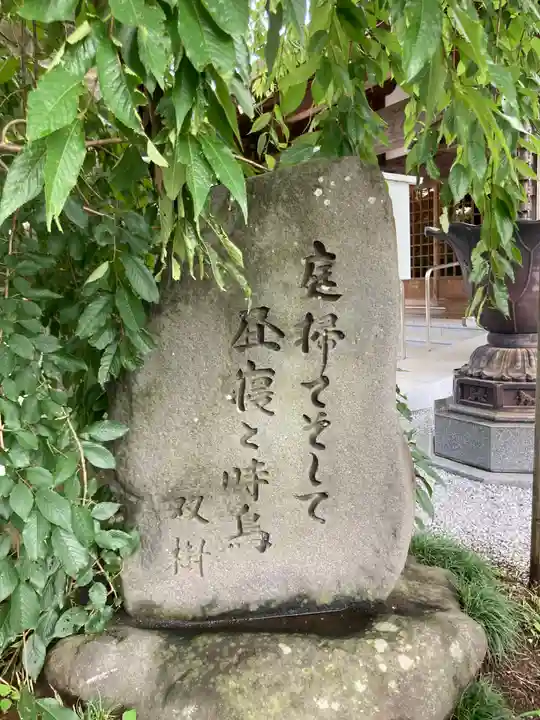 庭掃てそして
昼寝と時鳥
双樹